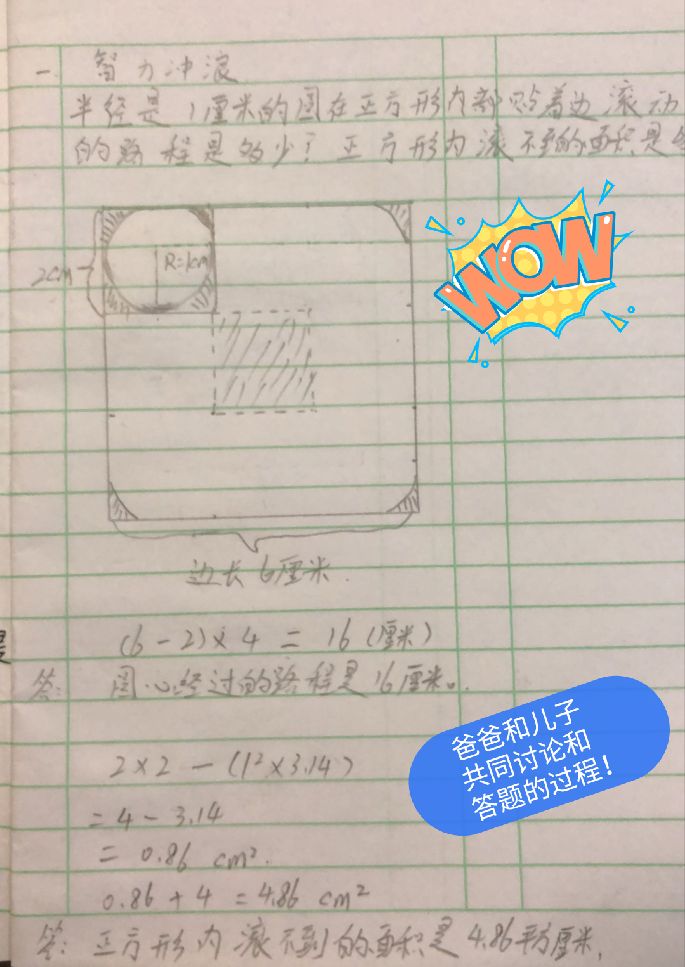 一. 智力冲浪
半径是1厘米的圆在正方形内部贴着边滚动
的路程是多少?正方形内滚不到的面积是
2cm
R=1cm
WOW
边长6厘米.
(6-2)×4=16(厘米)
答: 圆心经过的路程是16厘米。
爸爸和儿子
共同讨论和
答题的过程!
2×2-(1²×3.14)
=4-3.14
=0.86 cm².
0.86+4=4.86 cm²
答: 正方形内滚不到的面积是4.86平方厘米.